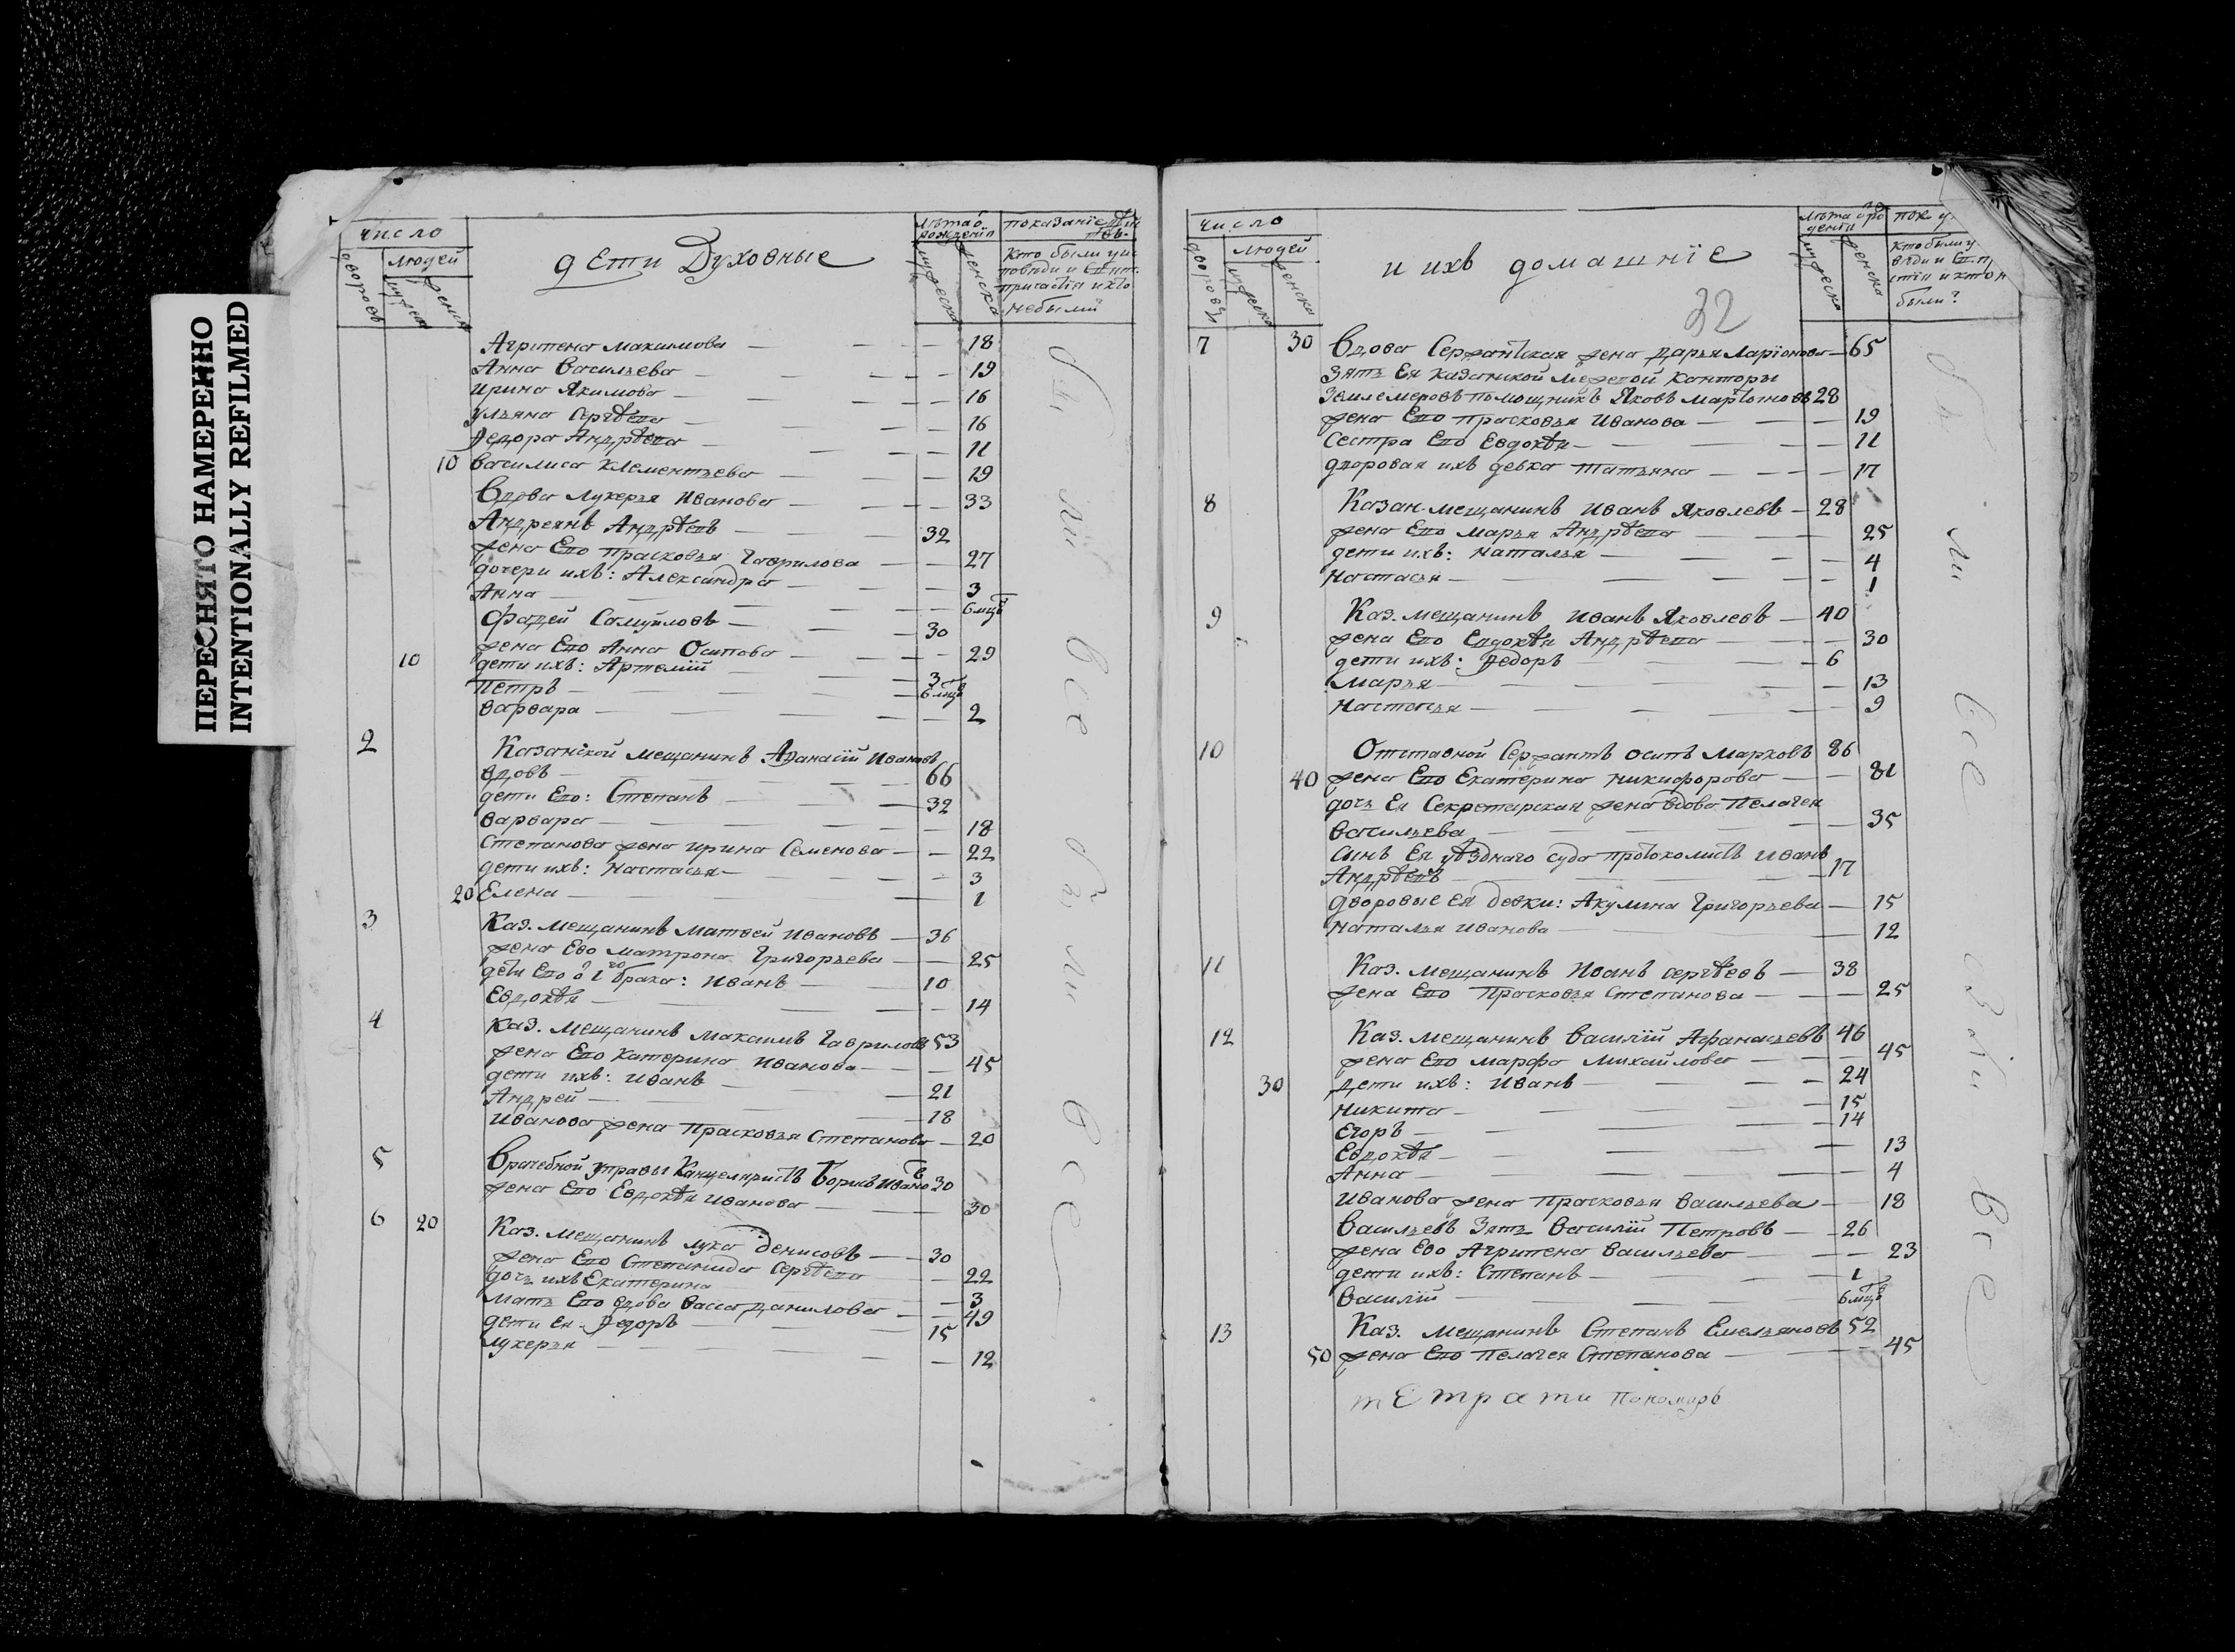 ПЕРЕСНЯТО НАМЕРЕННО
INTENTIONALLY REFILMED
число
людей
дети Духовные
лѣта о
рождения
показание
Кто были
небыли
Агрипена Максимова — 18
Анна Васильева — 19
Ирина Якимова — 16
Ульяна Сергѣева — 16
Ѳедора Андрѣева — 11
10 Василиса Клементьева — 19
Вдова Лукерья Иванова — 33
Андреянъ Андрѣевъ — 32
жена Его Прасковья Гаврилова — 27
дочери ихъ: Александра — 3
Анна — 6 мцъ
Фадей Самуиловъ — 30
жена Его Анна Осипова — 29
10 дети ихъ: Артемий — 3
Петръ — 6 мцъ
Варвара — 2
2 Казанской мещанинъ Аѳанасий Ивановъ
вдовъ — 66
дети Его: Степанъ — 32
Варвара — 18
Степанова жена Ирина Семенова — 22
дети ихъ: Настасья — 3
20 Елена — 1
3 Каз. мещанинъ Матвей Ивановъ — 36
жена Ево Матрона Григорьева — 25
дети Его о 1го брака: Иванъ — 10
Евдокѣя — 14
4 Каз. мещанинъ Максимъ Гавриловъ 53
жена Его Катерина Иванова — 45
дети ихъ: Иванъ — 21
Андрей — 18
Иванова жена Прасковья Степанова — 20
5 Врачебной управы Канцеляристъ Борисъ Ивановъ 30
жена Его Евдокѣя Иванова — 30
6 20 Каз. мещанинъ Лука Денисовъ — 30
жена Его Степанида Сергѣева — 22
дочь ихъ Екатерина — 3
мать Его вдова Васса Данилова — 49
дети Ея: Ѳедоръ — 15
Лукерья — 12
были все были все
число
людей
и ихъ домашніе
32
Кто были у
были?
7 30 Вдова Сержантская жена Дарья Ларионова — 65
Зять Ея Казанской Межевой Канторы
Землемеровъ помощникъ Яковъ Мартоновъ 28
жена Его Прасковья Иванова — 19
Сестра Его Евдокѣя — 11
дворовая ихъ девка Татьяна — 17
8 Казан. мещанинъ Иванъ Яковлевъ — 28
жена Его Марья Андрѣева — 25
дети ихъ: Наталья — 4
Настасья — 1
9 Каз. мещанинъ Иванъ Яковлевъ — 40
жена Его Евдокѣя Андрѣева — 30
дети ихъ: Ѳедоръ — 6
Марья — 13
Настасья — 9
10 Отставной Сержантъ Осипъ Марковъ 86
40 жена Его Екатерина Никифорова — 81
дочь Ея Секретарская жена вдова Пелагея
Васильева — 35
сынъ Ея уѣзднаго суда протоколистъ Иванъ
Андрѣевъ — 17
дворовые Ея девки: Акулина Григорьева — 15
Наталья Иванова — 12
11 Каз. мещанинъ Иванъ Сергѣевъ — 38
жена Его Прасковья Степанова — 25
12 Каз. мещанинъ Василий Афанасьевъ 46
жена Его Марфа Михайлова — 45
30 дети ихъ: Иванъ — 24
Никита — 15
Егоръ — 14
Евдокѣя — 13
Анна — 4
Иванова жена Прасковья Васильева — 18
Васильевъ Зять Василий Петровъ — 26
жена Ево Агрипена Васильева — 23
дети ихъ: Степанъ — 1
Василий — 6 мцъ
13 Каз. мещанинъ Степанъ Емельяновъ 52
50 жена Его Пелагея Степанова — 45
были все были все
тетрати пономарь